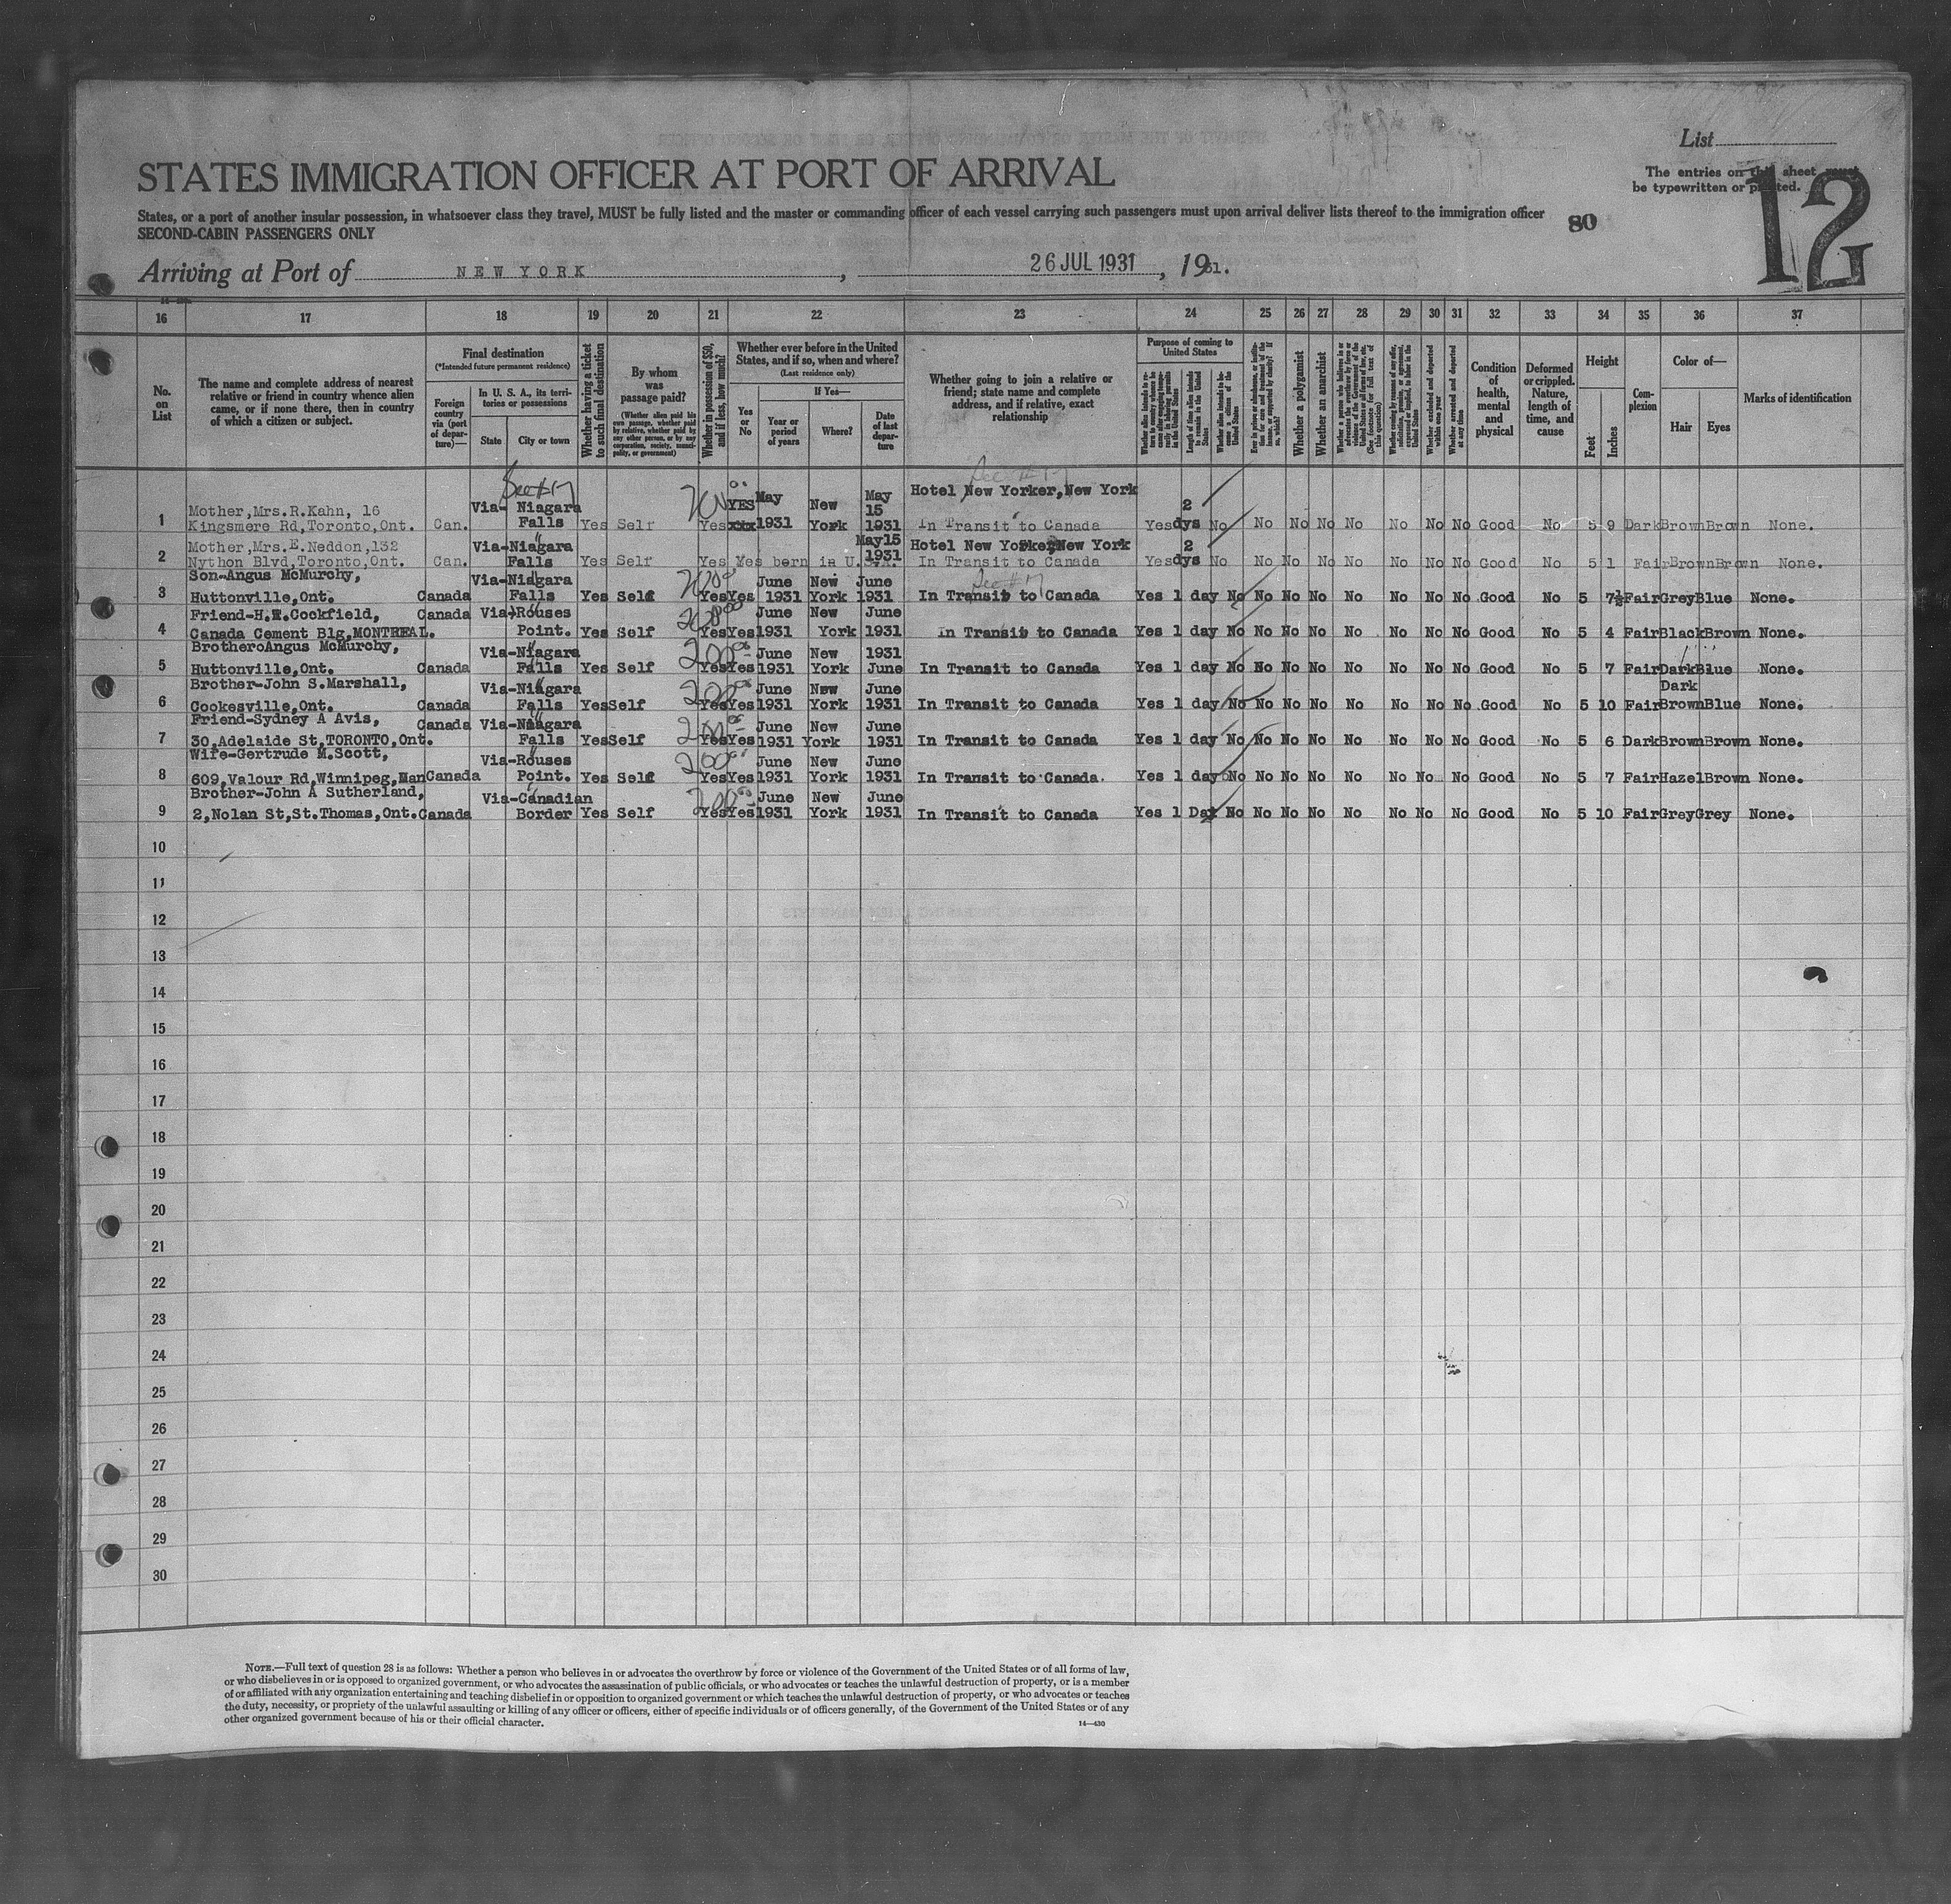 List
The entries on this sheet must
be typewritten or printed.
12
STATES IMMIGRATION OFFICER AT PORT OF ARRIVAL
States, or a port of another insular possession, in whatsoever class they travel, MUST be fully listed and the master or commanding officer of each vessel carrying such passengers must upon arrival deliver lists thereof to the immigration officer
SECOND-CABIN PASSENGERS ONLY
80
Arriving at Port of NEW YORK, 26 JUL 1931, 1931.
16 17 18 19 20 21 22 23 24 25 26 27 28 29 30 31 32 33 34 35 36 37
No. on List
The name and complete address of nearest
relative or friend in country whence alien
came, or if none there, then in country
of which a citizen or subject.
Final destination
(*Intended future permanent residence)
Foreign country via (port of departure)—
In U. S. A., its territories or possessions
State
City or town
Whether having a ticket to such final destination
By whom was passage paid?
(Whether alien paid his own passage, whether paid by relative, whether paid by any other person, or by any corporation, society, municipality, or government)
Whether in possession of $50, and if less, how much?
Whether ever before in the United States, and if so, when and where?
(Last residence only)
Yes or No
If Yes—
Year or period of years
Where?
Date of last departure
Whether going to join a relative or
friend; state name and complete
address, and if relative, exact
relationship
Purpose of coming to United States
Whether a polygamist
Whether an anarchist
Whether excluded and deported within one year
Whether arrested and deported at any time
Condition of health, mental and physical
Deformed or crippled. Nature, length of time, and cause
Height
Feet
Inches
Complexion
Color of—
Hair
Eyes
Marks of identification
See #17
See #17
Hotel New Yorker, New York
1 Mother, Mrs. R. Kahn, 16 Kingsmere Rd, Toronto, Ont. Can. Via- Niagara Falls Yes Self Yes YES xxx May 1931 New York May 15 1931 In Transit to Canada Yes 2 dys No No No No No No No No Good No 5 9 Dark Brown Brown None.
2 Mother, Mrs. E. Neddon, 132 Nython Blvd, Toronto, Ont. Can. Via-Niagara Falls Yes Self Yes Yes born in U.S.A. May 15 1931 Hotel New Yorker, New York In Transit to Canada Yes 2 dys No No No No No No No No Good No 5 1 Fair Brown Brown None.
See #17
3 Son-Angus McMurchy, Huttonville, Ont. Canada Via-Niagara Falls Yes Self 200 Yes Yes June 1931 New York June 1931 In Transit to Canada Yes 1 day No No No No No No No No Good No 5 7½ Fair Grey Blue None.
4 Friend-H.W. Cockfield, Canada Cement Blg, MONTREAL. Canada Via-Rouses Point. Yes Self 200 Yes Yes June 1931 New York June 1931 In Transit to Canada Yes 1 day No No No No No No No No Good No 5 4 Fair Black Brown None.
5 BrotheroAngus McMurchy, Huttonville, Ont. Canada Via-Niagara Falls Yes Self 200 Yes Yes June 1931 New York 1931 June In Transit to Canada Yes 1 day No No No No No No No No Good No 5 7 Fair Dark Blue None.
6 Brother-John S. Marshall, Cookesville, Ont. Canada Via-Niagara Falls Yes Self 200 Yes Yes June 1931 New York June 1931 In Transit to Canada Yes 1 day No No No No No No No No Good No 5 10 Fair Dark Brown Blue None.
7 Friend-Sydney A Avis, 30, Adelaide St, TORONTO, Ont. Canada Via-Niagara Falls Yes Self 200 Yes Yes June 1931 New York June 1931 In Transit to Canada Yes 1 day No No No No No No No No Good No 5 6 Dark Brown Brown None.
8 Wife-Gertrude M. Scott, 609, Valour Rd, Winnipeg, Man Canada Via-Rouses Point. Yes Self 200 Yes Yes June 1931 New York June 1931 In Transit to Canada. Yes 1 day No No No No No No No No Good No 5 7 Fair Hazel Brown None.
9 Brother-John A Sutherland, 2, Nolan St, St. Thomas, Ont. Canada Via-Canadian Border Yes Self 200 Yes Yes June 1931 New York June 1931 In Transit to Canada Yes 1 Day No No No No No No No No Good No 5 10 Fair Grey Grey None.
10
11
12
13
14
15
16
17
18
19
20
21
22
23
24
25
26
27
28
29
30
NOTE.—Full text of question 28 is as follows: Whether a person who believes in or advocates the overthrow by force or violence of the Government of the United States or of all forms of law,
or who disbelieves in or is opposed to organized government, or who advocates the assassination of public officials, or who advocates or teaches the unlawful destruction of property, or is a member
of or affiliated with any organization entertaining and teaching disbelief in or opposition to organized government or which teaches the unlawful destruction of property, or who advocates or teaches
the duty, necessity, or propriety of the unlawful assaulting or killing of any officer or officers, either of specific individuals or of officers generally, of the Government of the United States or of any
other organized government because of his or their official character.
14—430